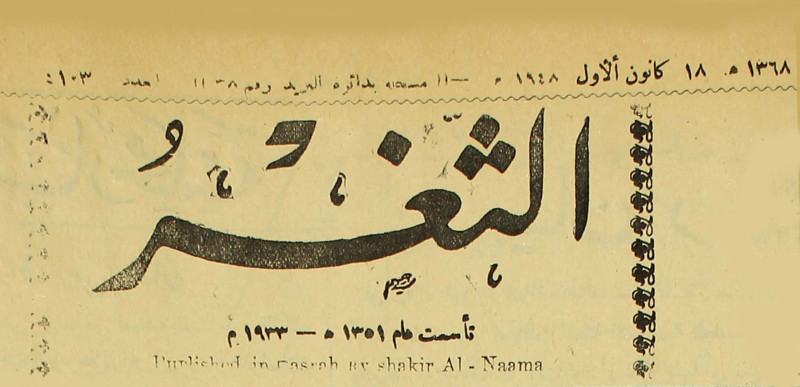 ١٣٦٨ ه‍. ١٨ كانون ألاول ١٩٤٨ م — ١١ مسجلة بدائرة البريد رقم ٨ – ١١ العدد ١٠٣
الثغر
تأسست عام ١٣٥١ ه — ١٩٣٣ م
Published in Basrah By shakir Al - Naama